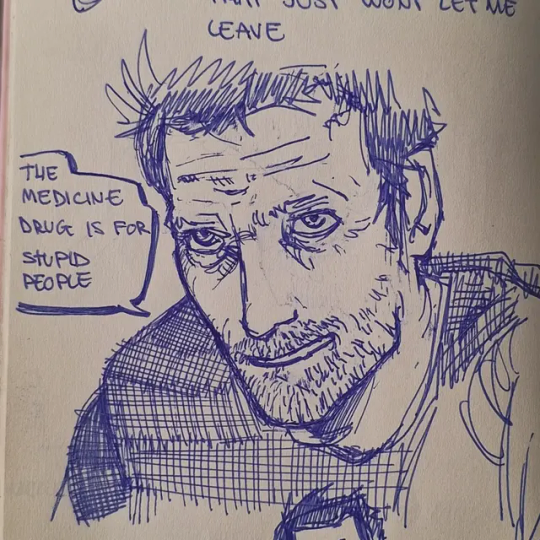 THAT JUST WONT LET ME
LEAVE
THE
MEDICINE
DRUG IS FOR
STUPID
PEOPLE